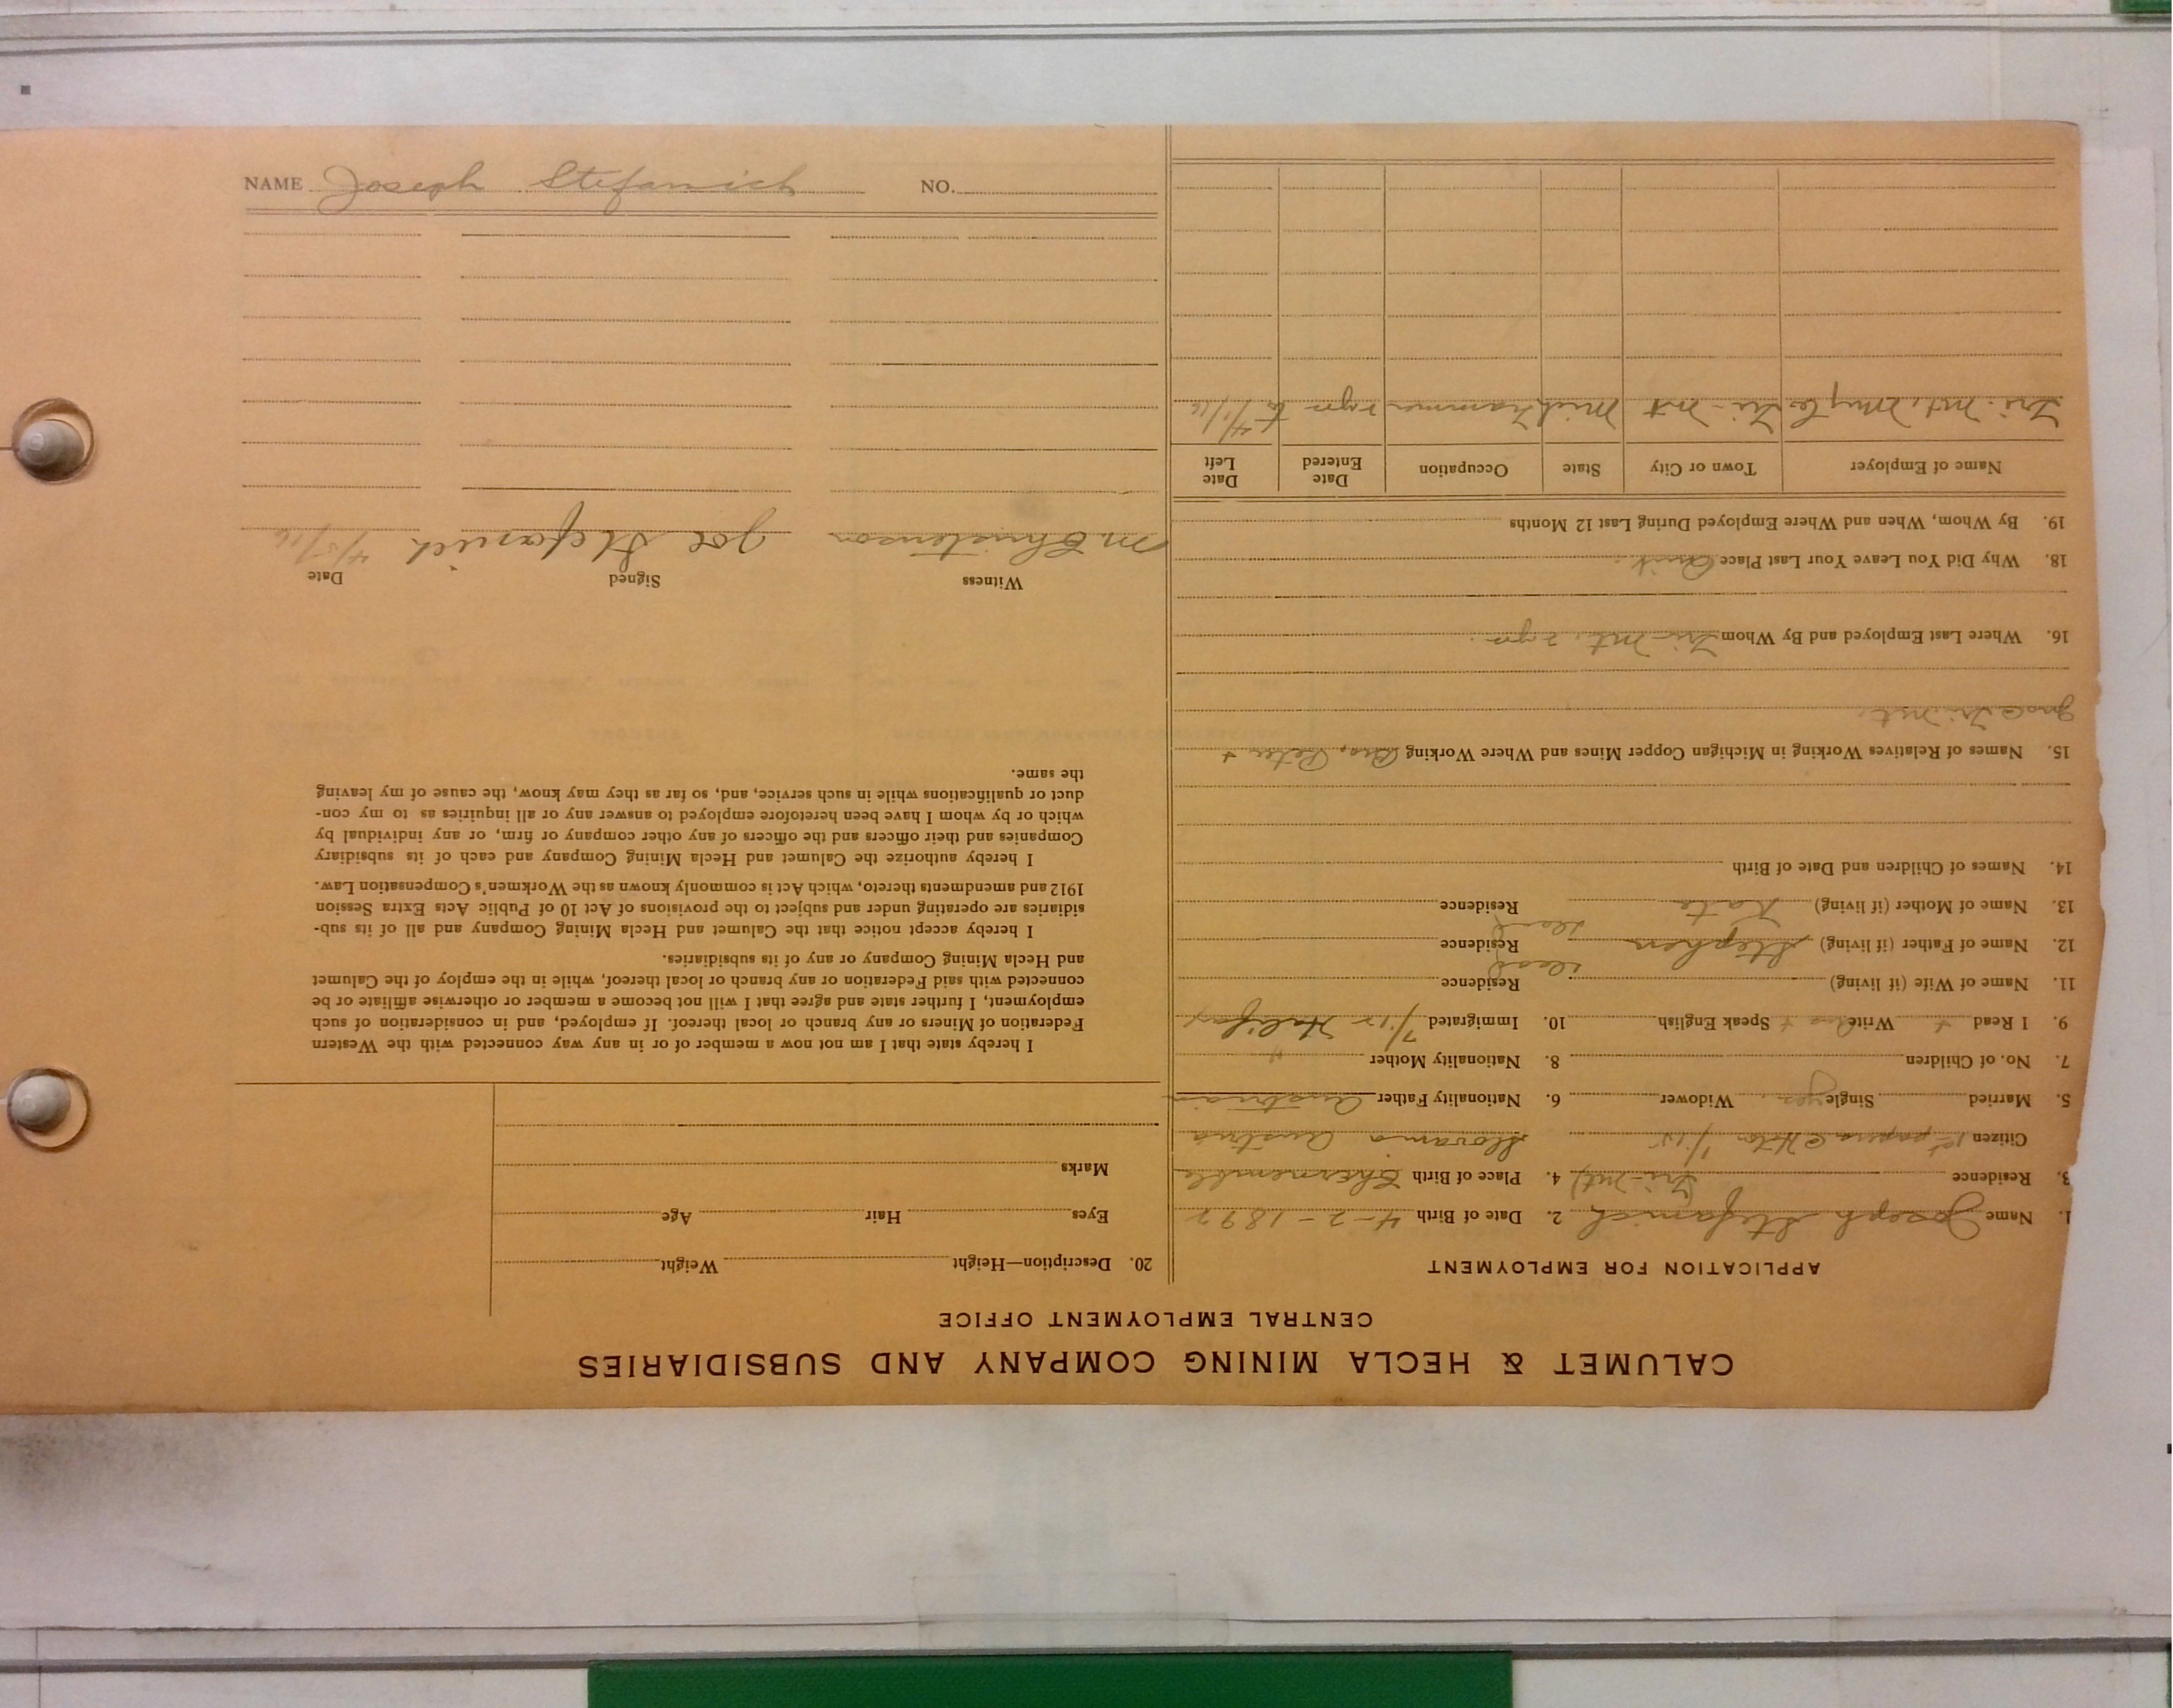 CALUMET & HECLA MINING COMPANY AND SUBSIDIARIES
CENTRAL EMPLOYMENT OFFICE
APPLICATION FOR EMPLOYMENT
1. Name Joseph Stefanich 2. Date of Birth 4-2-1892
3. Residence (Tri-Mt) 4. Place of Birth
Citizen 1st papers @ Hoton 1/15 Slovania Austria
5. Married Single yes, Widower 6. Nationality Father Austrian
7. No. of Children 8. Nationality Mother "
9. I Read + Write + Speak English 10. Immigrated 7/12 Halifax
11. Name of Wife (if living) Residence
12. Name of Father (if living) Stephen dead Residence
13. Name of Mother (if living) Kate dead Residence
14. Names of Children and Date of Birth
15. Names of Relatives Working in Michigan Copper Mines and Where Working Bro, Peter +
@ Tri-Mt.
16. Where Last Employed and By Whom Tri-Mt. 2 yrs.
18. Why Did You Leave Your Last Place Quit.
19. By Whom, When and Where Employed During Last 12 Months
Name of Employer Town or City State Occupation Date Entered Date Left
Tri. Mt. Mng Co Tri-Mt Mich Trammer 2 yrs to 4/1/16
20. Description—Height Weight
Eyes Hair Age
Marks
I hereby state that I am not now a member of or in any way connected with the Western
Federation of Miners or any branch or local thereof. If employed, and in consideration of such
employment, I further state and agree that I will not become a member or otherwise affiliate or be
connected with said Federation or any branch or local thereof, while in the employ of the Calumet
and Hecla Mining Company or any of its subsidiaries.
I hereby accept notice that the Calumet and Hecla Mining Company and all of its sub-
sidiaries are operating under and subject to the provisions of Act 10 of Public Acts Extra Session
1912 and amendments thereto, which Act is commonly known as the Workmen's Compensation Law.
I hereby authorize the Calumet and Hecla Mining Company and each of its subsidiary
Companies and their officers and the officers of any other company or firm, or any individual by
which or by whom I have been heretofore employed to answer any or all inquiries as to my con-
duct or qualifications while in such service, and, so far as they may know, the cause of my leaving
the same.
Witness Signed Date
M Christenson Joe Stefanich 4/5/16
NAME Joseph Stefanich NO.